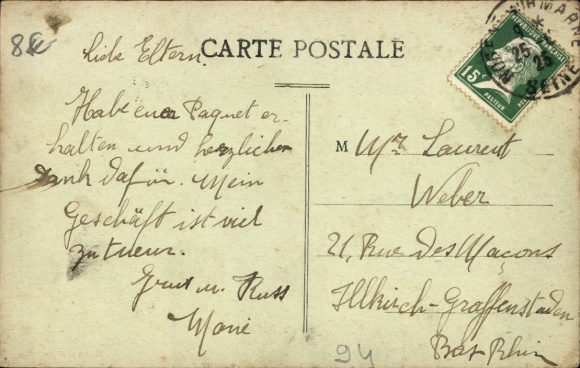 82
Liebe Eltern.
CARTE POSTALE
Habe euer Paquet er-
halten und herzlichen
Dank dafür. Mein
Geschäft ist viel
zu teuer.
Gruss u. Kuss
Marie
M Mr Laurent
Weber
21, Rue des Maçons
Illkirch-Graffenstaden
Bas-Rhin
94
RÉPUBLIQUE FRANÇAISE
15c
PASTEUR
25
SEINE
SUR MARNE